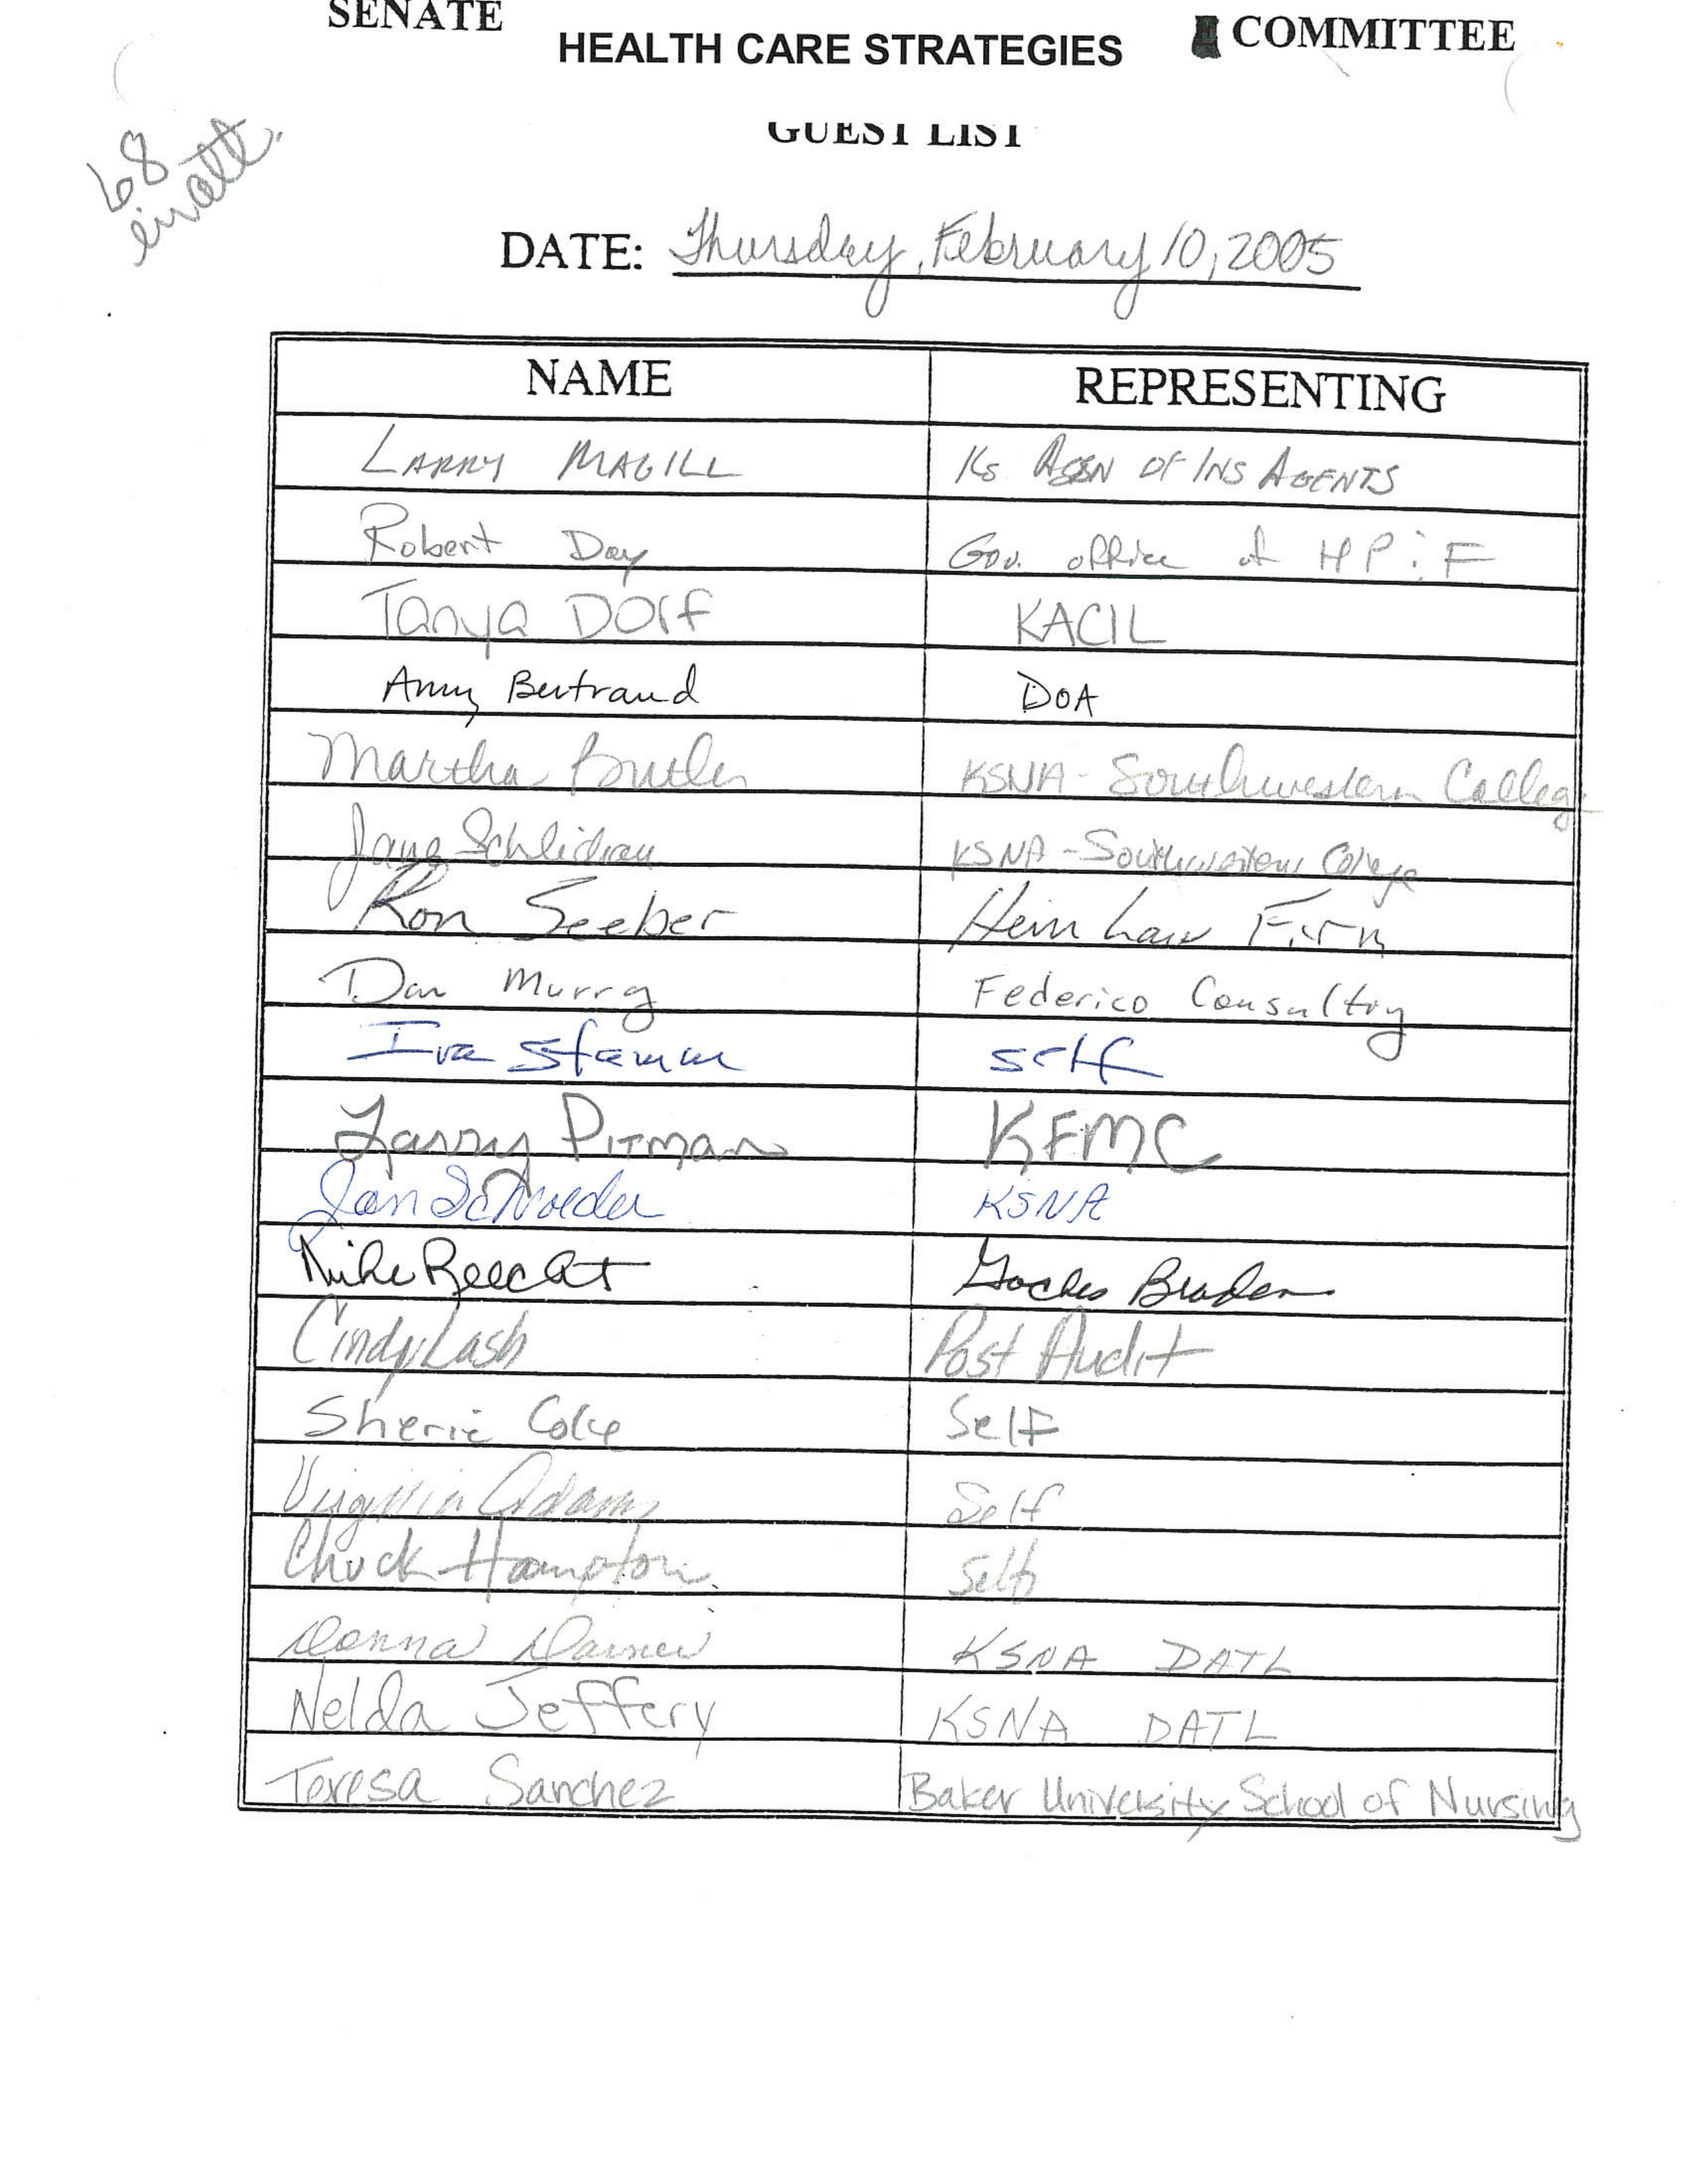 SENATE HEALTH CARE STRATEGIES COMMITTEE
GUEST LIST
68
in att.
DATE: Thursday, February 10, 2005
NAME REPRESENTING
LARRY MAGILL Ks ASSN OF INS AGENTS
Robert Day Gov. office of HP:F
Tanya Dorf KACIL
Amy Bertrand DOA
Martha Butler KSNA - Southwestern College
Jane KSNA - Southwestern College
Ron Seeber Hein Law Firm
Dan Murray Federico Consulting
Iva Stamm self
Larry Pitman KFMC
Jan Schroeder KSNA
Mike Reecht Goches Braden
Cindy Lash Post Audit
Sherie Coke Self
Virginia Adams Self
Chuck Hampton Self
Donna KSNA DATL
Nelda Jeffery KSNA DATL
Teresa Sanchez Baker University School of Nursing